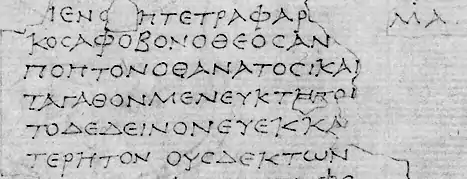 ΙΕΝΟ ΗΤΕΤΡΑΦΑΡΙ ΜΑ
ΚΟϹΑΦΟΒΟΝΟΘΕΟϹΑΝ
ΠΟΗΤΟΝΟΘΑΝΑΤΟϹΙΚΑΙ
ΤΑΓΑΘΟΝΜΕΝΕΥΚΤΗΤΟΙ
ΤΟΔΕΔΕΙΝΟΝΕΥΕΚΚΑ
ΤΕΡΗΤΟΝ ΟΥϹΔΕΚΤΩΝ